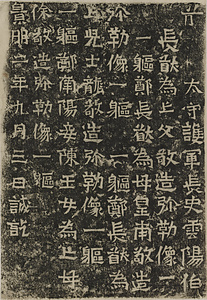 前 太守護軍長史雲陽伯
長猷為亡父敬造弥勒像一
軀鄭長猷為母皇甫敬造
弥勒像一軀 一軀鄭長猷為
亡兒士龍敬造弥勒像一
軀鄭南陽妾陳玉女為亡母
徐敬造弥勒像一軀
景明二年九月三日誠訖